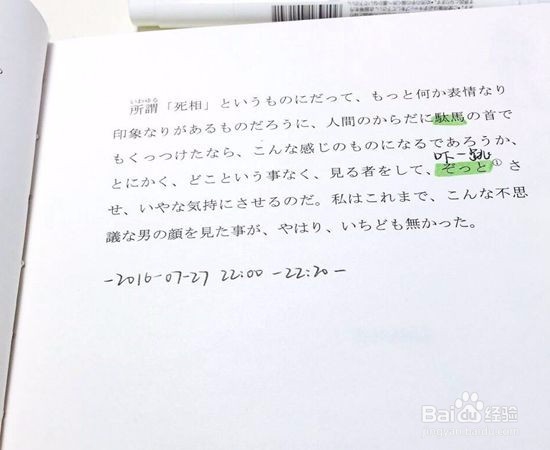 いわゆる
所謂「死相」というものにだって、もっと何か表情なり
印象なりがあるものだろうに、人間のからだに駄馬の首で
もくっつけたなら、こんな感じのものになるであろうか、
吓一跳
とにかく、どこという事なく、見る者をして、ぞっと①さ
せ、いやな気持にさせるのだ。私はこれまで、こんな不思
議な男の顔を見た事が、やはり、いちども無かった。
-2016-07-27 22:00 -22:20-
Baidu 经验
jingyan.baidu.com